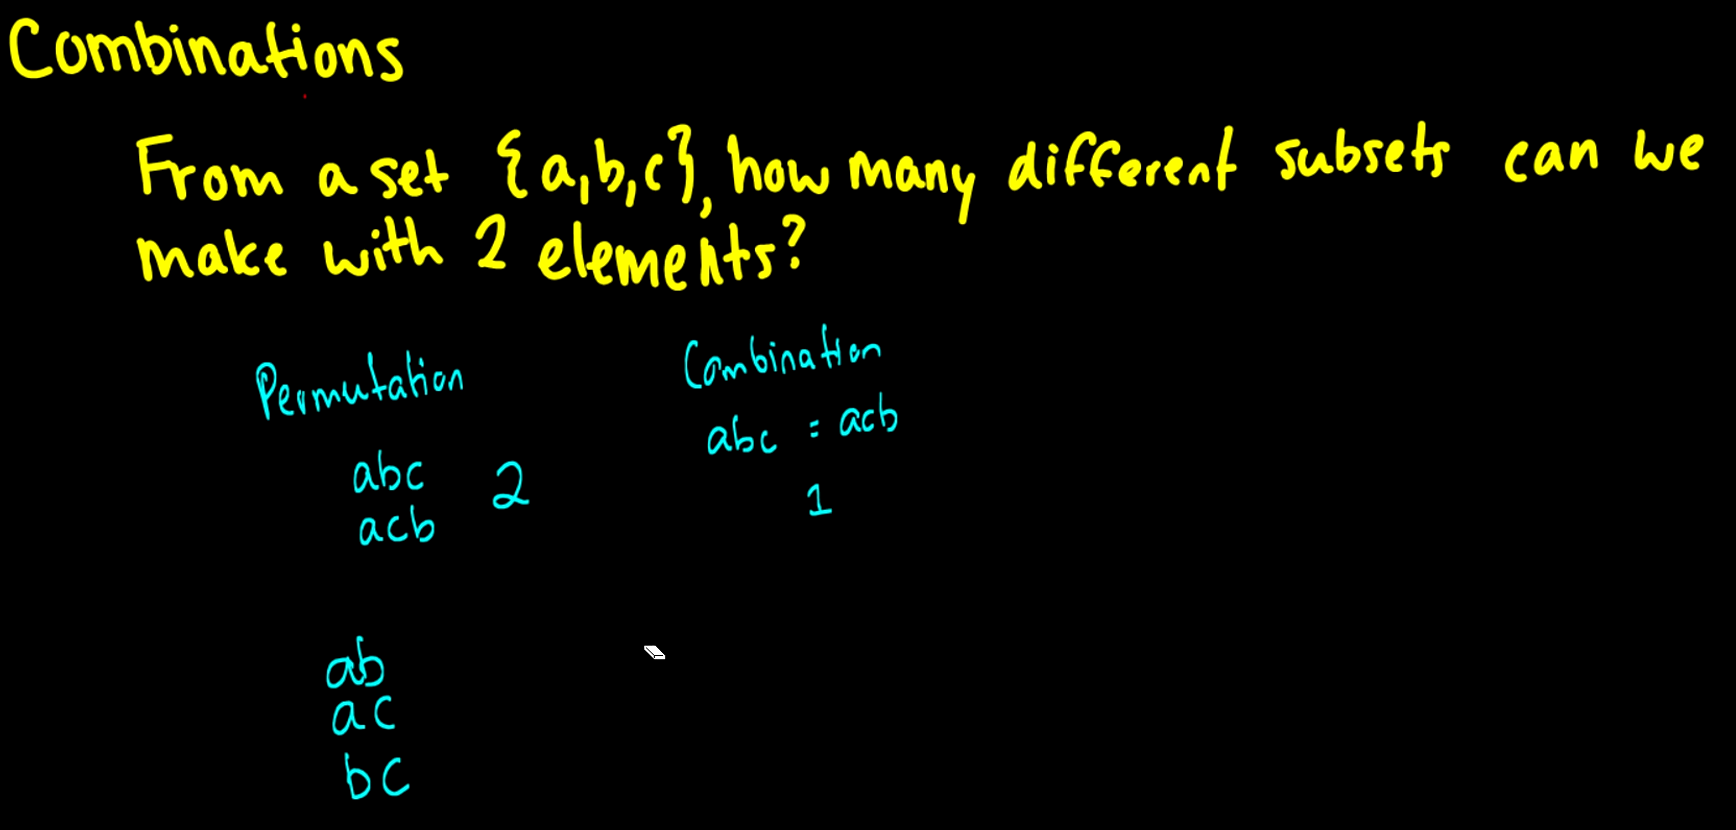 Combinations
From a set {a,b,c}, how many different subsets can we
make with 2 elements?
Permutation
abc 2
acb
Combination
abc = acb
1
ab
ac
bc